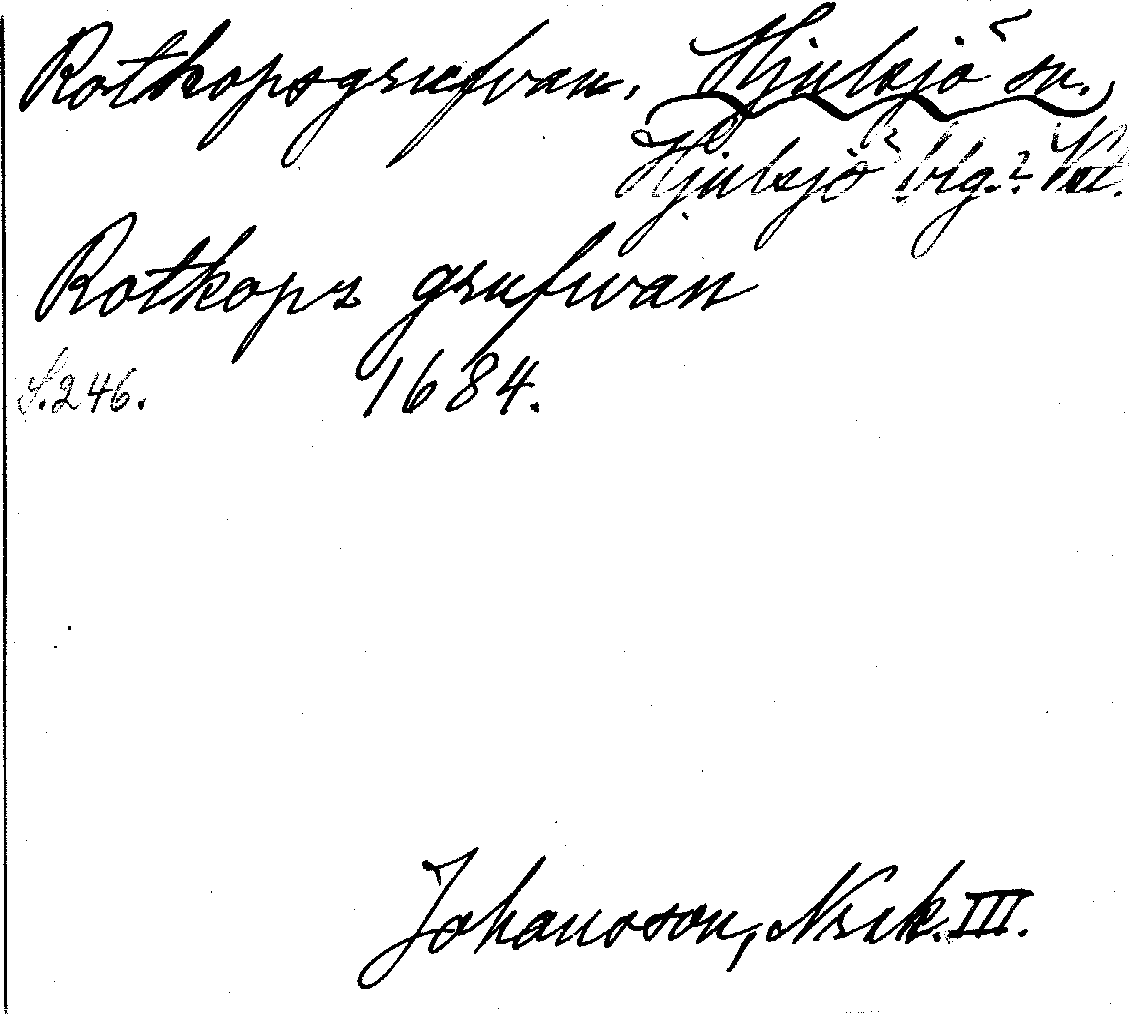 Rotkopsgrufvan. Hjulsjö sn.,
Hjulsjö blg.? Vstl.
Rotkops grufwan
S. 246. 1684.
Johansson, Nsik. III.